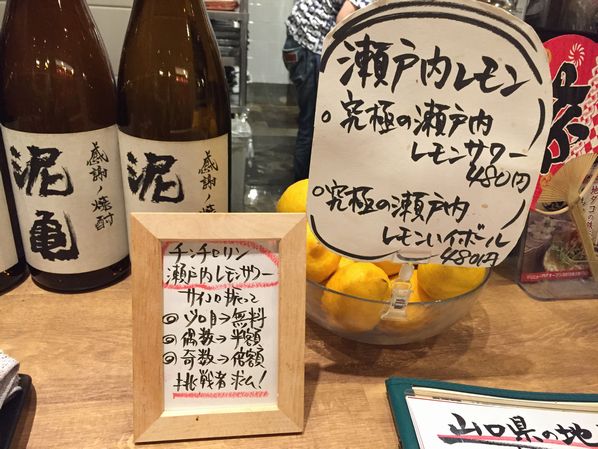 泥亀
感謝ノ焼酎
泥亀
感謝ノ焼
瀬戸内レモン
究極の瀬戸内
レモンサワー
480円
究極の瀬戸内
レモンハイボール
480円
チンチロリン
瀬戸内レモンサワー
サイコロ振って
◎ゾロ目→無料
◎偶数→半額
◎奇数→倍額
挑戦者求ム!
山口県の地